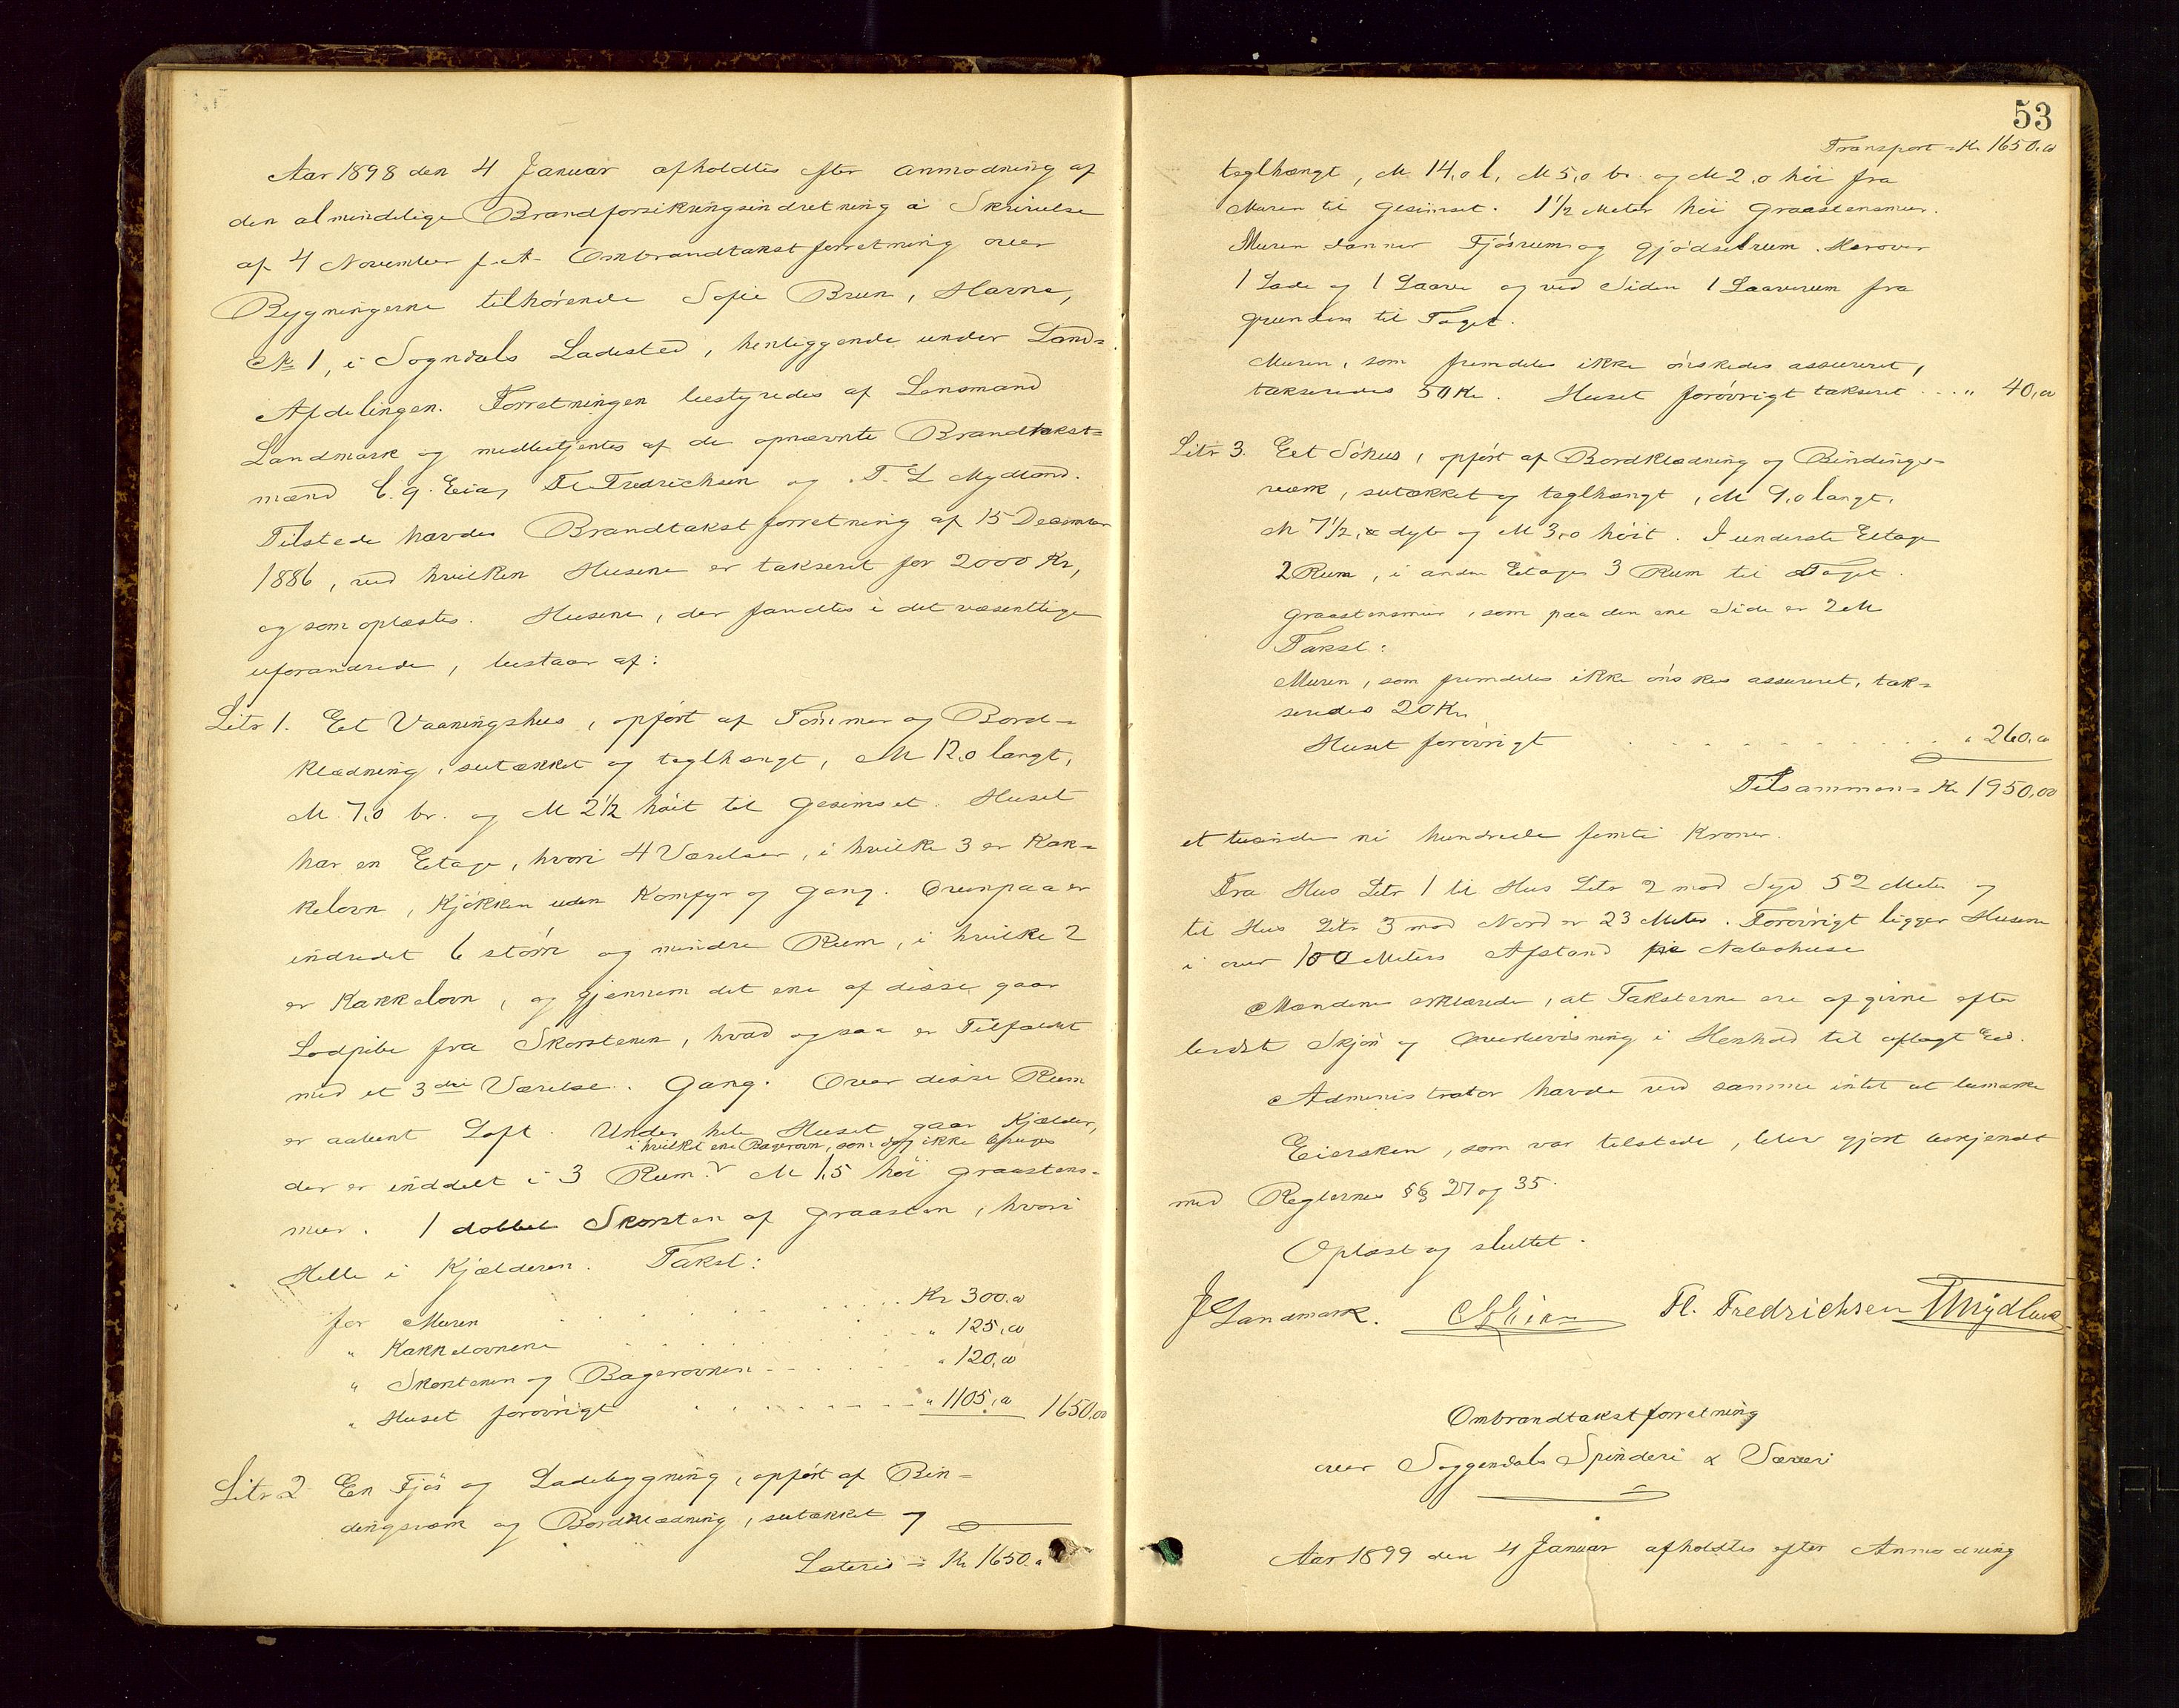 Aar 1898 den 4 Januar afholdtes efter Anmodning af
den almindelige Brandforsikringsindretning i Skrivelse
af 4 November f. A. Ombrandtakstforretning over
Bygningerne tilhørende Sofie Brun, Havne,
№ 1, i Sogndals Ladested, henliggende under Land-
Afdelingen. Forretningen bestyredes af Lensmand
Landmark og medbetjentes af de opnævnte Brandtakst-
mænd C. G. Eia, Fl. Fredrichsen og T. L. Mydland.
Tilstede havdes Brandtakstforretning af 15 December
1886, ved hvilken Husene er takseret for 2000 Kr,
og som oplæstes. Husene, der fandtes i det væsentlige
uforandrede, bestaar af:
Litr 1. Et Vaaningshus, opført af Tømmer og Bord-
klædning, sutækket og teglhængt, M 12,0 langt,
M 7,0 br. og M 2½ høit til Gesimset. Huset
har en Etage, hvori 4 Værelser, i hvilke 3 er Kak-
kelovn, Kjøkken uden Komfyr og Gang. Ovenpaa er
indredet 6 større og mindre Rum, i hvilke 2
er Kakkelovn, og gjennem det ene af disse gaar
Lodpibe fra Skorstenen, hvad ogsaa er Tilfældet
med et 3die Værelse. Gang. Over disse Rum
er aabent Loft. Under hele Huset gaar Kjælder,
i hvilket ene Bagerovn, som dog ikke bruges
der er inddelt i 3 Rum. M 1,5 høi Graastens-
mur. 1 dobbel Skorsten af Graasten, hvori
Helle i Kjælderen. Takst:
for Muren . . . . Kr 300,00
" Kakkelovnene . . . . " 125,00
" Skorstenen og Bagerovnen . . . . " 120,00
" Huset forøvrigt . . . . " 1105,00 1650,00
Litr 2 En Fjøs og Ladebygning, opført af Bin-
dingsværk og Bordklædning, sutækket og
Lateris = Kr 1650,00
53
Transport = Kr 1650,00
teglhængt, M. 14,0 l, M 5,0 br. og M 2,0 høi fra
Muren til Gesimset. 1½ Meter høi Graastensmur.
Muren danner Fjøsrum og Gjødselrum. Herover
1 Lade og 1 Laave og ved Siden 1 Laaverum fra
Grunden til Taget.
Muren, som fremdeles ikke ønskedes assureret,
takseredes 50 Kr. Huset forøvrigt takseret . . . " 40,00
Litr 3. Eet Søhus, opført af Bordklædning og Bindings-
værk, sutækket og teglhængt, M 9,0 langt,
M 7½ dyb og M 3,0 høit. I underste Etage
2 Rum, i anden Etage 3 Rum til Taget.
Graastensmur, som paa den ene Side er 2 M
Takst:
Muren, som fremdeles ikke ønskes assureret, tak-
seredes 20 Kr.
Huset forøvrigt . . . . " 260,00
Tilsammen = Kr 1950,00
et tusinde ni hundrede femti Kroner.
Fra Hus Litr 1 til Hus Litr 2 mod Syd 52 Meter og
til Hus Litr 3 mod Nord er 23 Meter. Forøvrigt ligger Husene
i over 100 Meters Afstand fra Nabohuse
Mændene erklærede, at Taksterne ere afgivne efter
bedste Skjøn og Overbevisning i Henhold til aflagt Eed.
Administrator havde ved samme intet at bemærke
Eiersken, som var tilstede, blev gjort bekjendt
med Reglernes §§ 27 og 35.
Oplæst og sluttet.
J Landmark. C G Eia Fl. Fredrichsen T Mydland
Ombrandtakstforretning
over Soggendals Spinderi & Væveri
Aar 1899 den 4 Januar afholdtes efter Anmodning